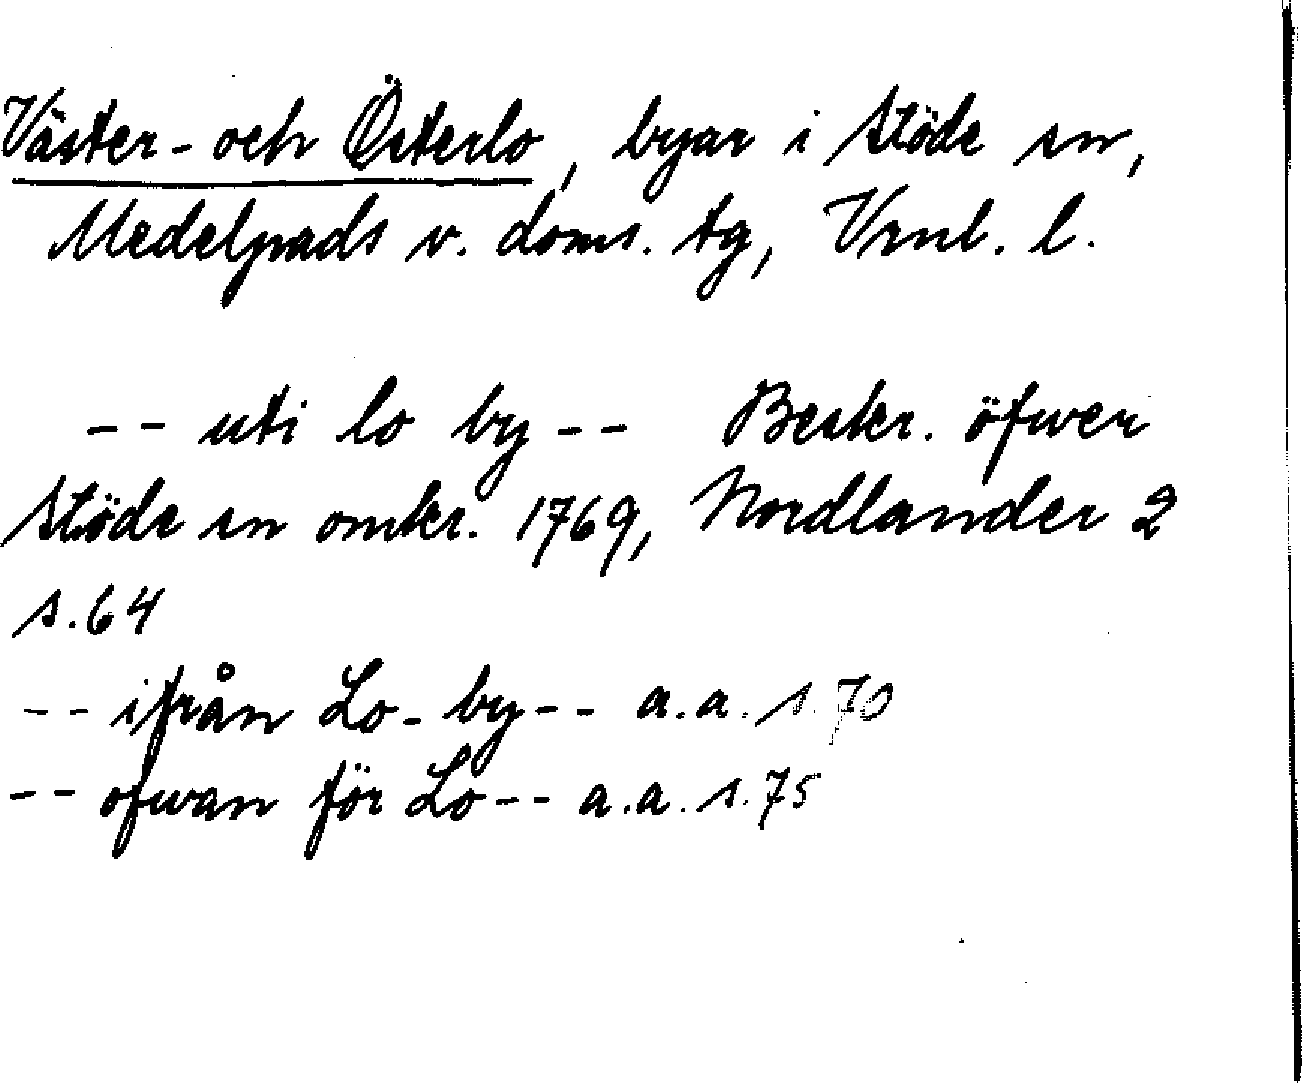 Väster- och Österlo, byar i Stöde sn,
Medelpads v. doms. tg, Vrnl. l.
-- uti lo by -- Beskr. öfwer
Stöde sn omkr. 1769, Nordlander 2
s. 64
-- ifrån Lo-by -- a.a. s. 70
-- ofwan för Lo -- a.a. s. 75